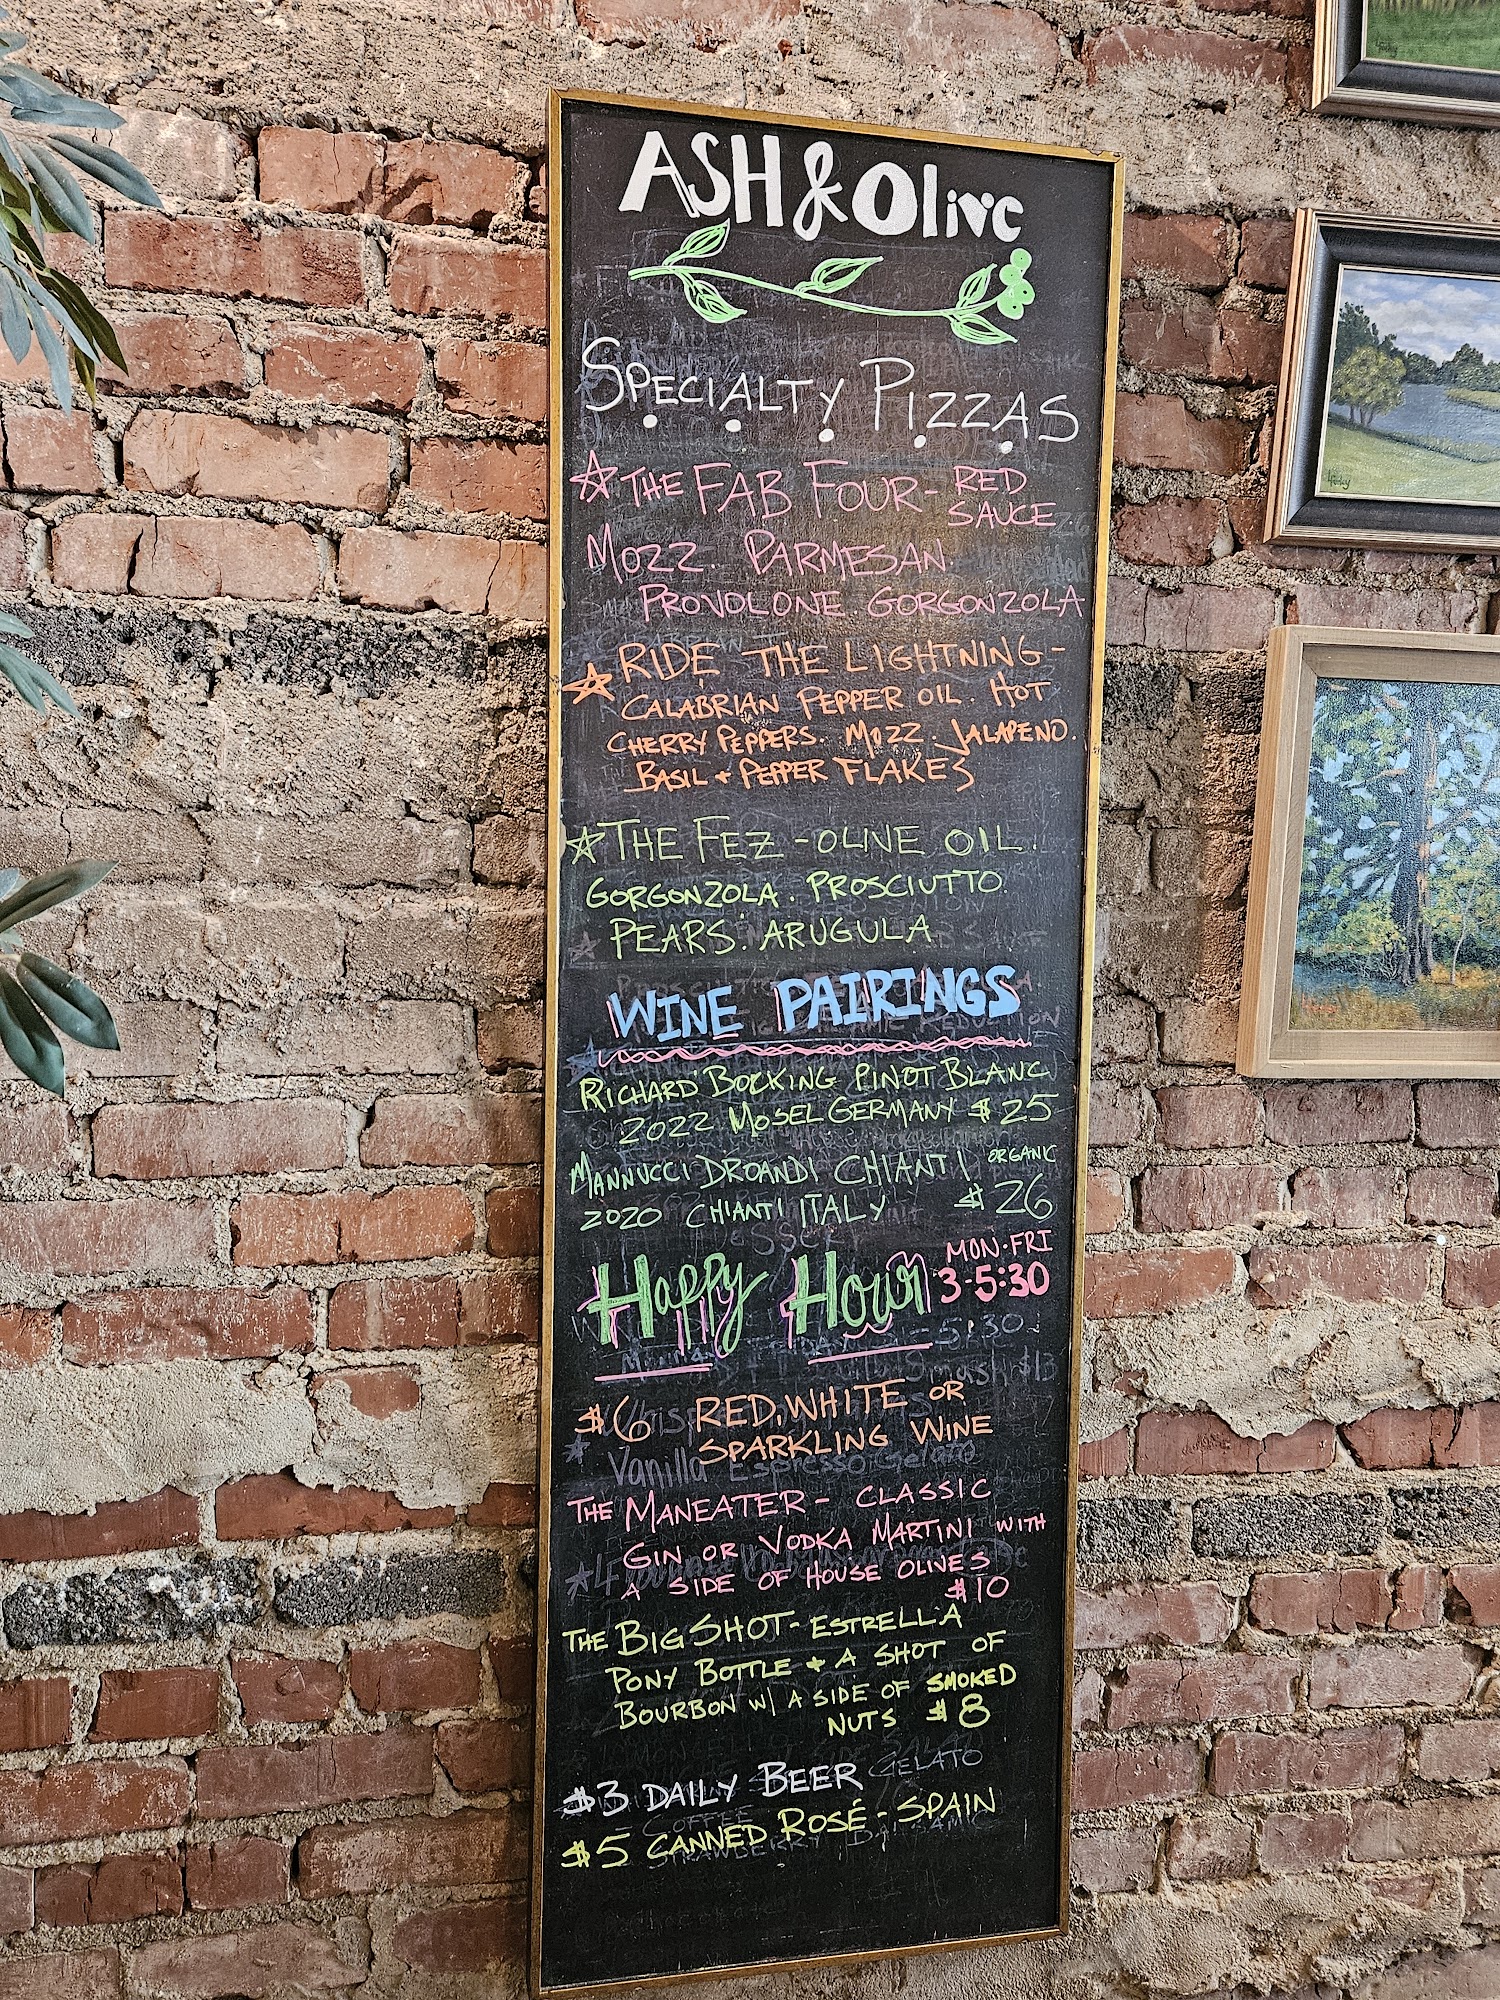 ASH & Olive
SPECIALTY PIZZAS
THE FAB FOUR - RED
SAUCE.
MOZZ. PARMESAN.
PROVOLONE. GORGONZOLA
RIDE THE LIGHTNING -
CALABRIAN PEPPER OIL. HOT
CHERRY PEPPERS. MOZZ. JALAPENO.
BASIL + PEPPER FLAKES
THE FEZ - OLIVE OIL.
GORGONZOLA. PROSCIUTTO.
PEARS. ARUGULA
WINE PAIRINGS
RICHARD BOCKING PINOT BLANC
2022 MOSEL GERMANY $25
MANNUCCI DROANDI CHIANTI ORGANIC
2020 CHIANTI ITALY $26
Happy Hour MON-FRI
3-5:30
$6 RED, WHITE OR
SPARKLING WINE
Vanilla Espresso Gelato
THE MANEATER - CLASSIC
GIN OR VODKA MARTINI WITH
A SIDE OF HOUSE OLIVES
$10
THE BIG SHOT - ESTRELLA
PONY BOTTLE + A SHOT OF
BOURBON W/ A SIDE OF SMOKED
NUTS $8
GELATO
$3 DAILY BEER
$5 CANNED ROSÉ - SPAIN